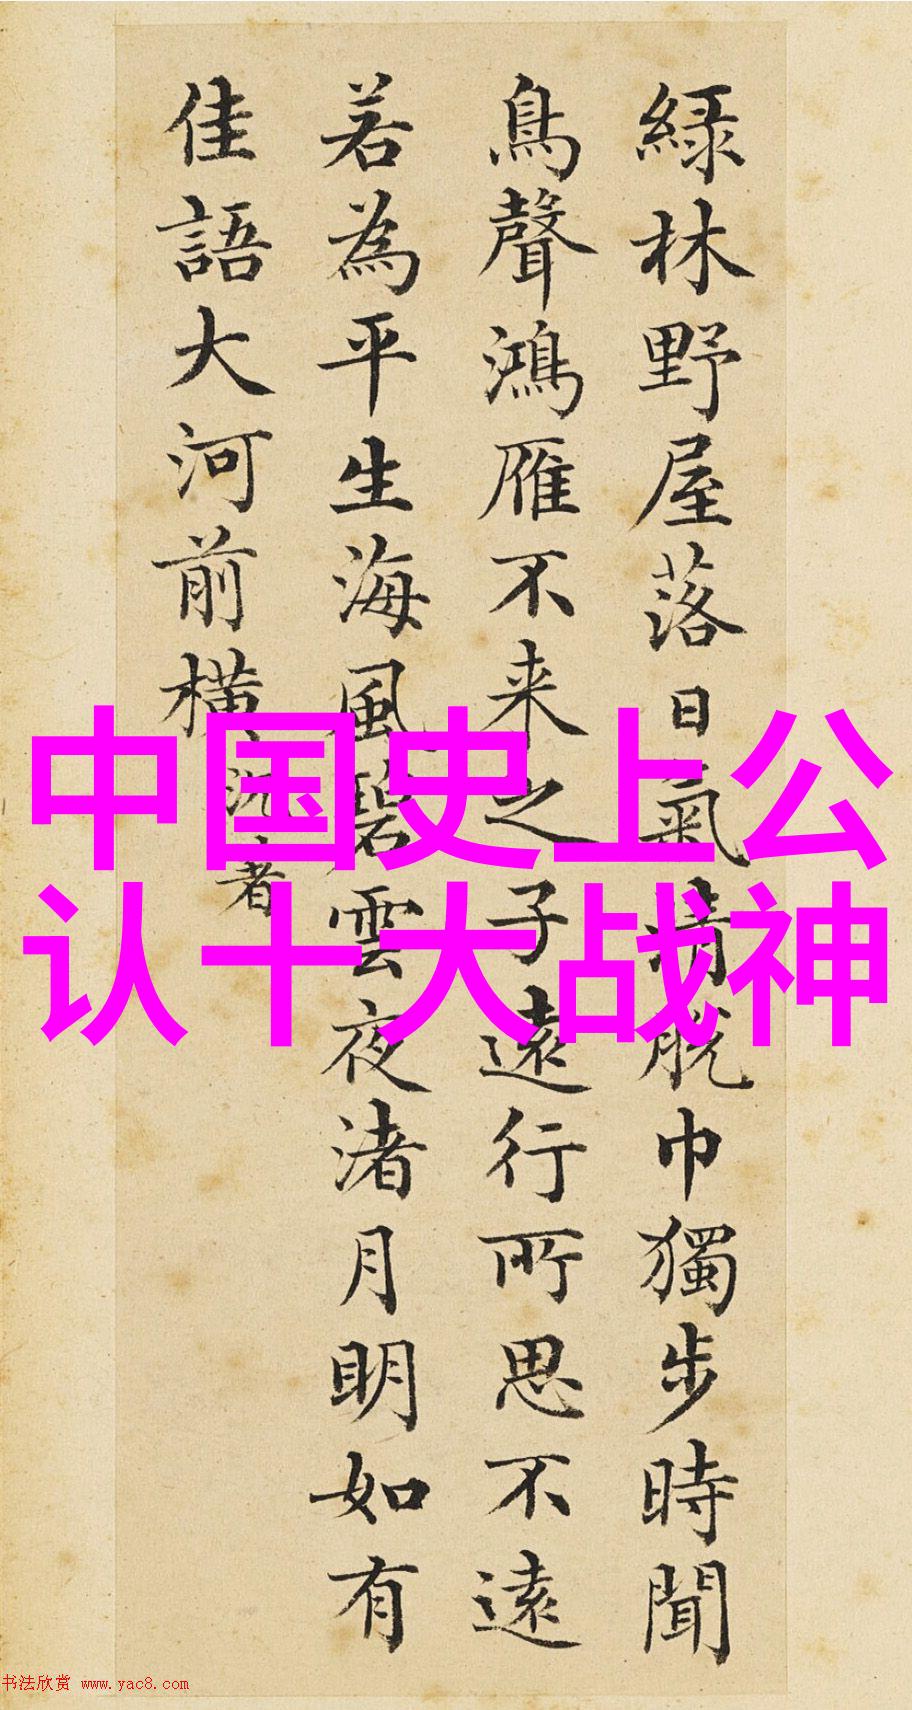 綠林野屋落日氣清脫巾獨步時聞
鳥聲鴻雁不来之子遠行所思不遠
若為平生海風碧雲夜渚月明如有
佳語大河前橫
沉著
中国史上公
认十大战神
书法欣赏 www.yac8.com